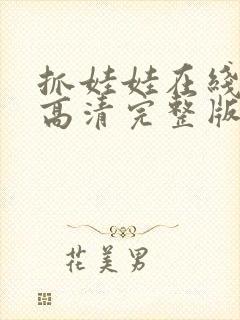 抓娃娃在线
高清完整版
花美男